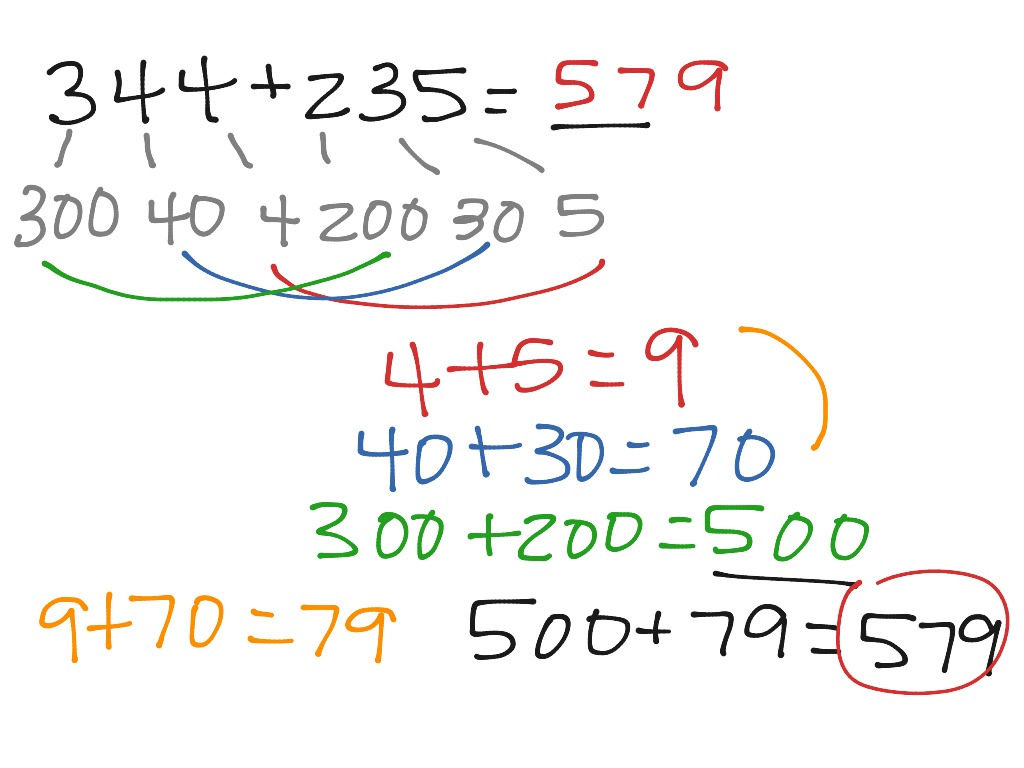 344+235= 579
300 40 4 200 30 5
4+5=9
40+30=70
300+200=500
9+70=79
500+79=579